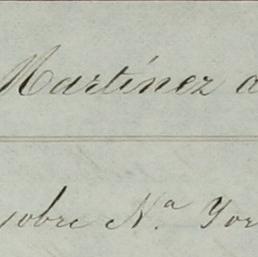 Martínez a
sobre N.ª Yor